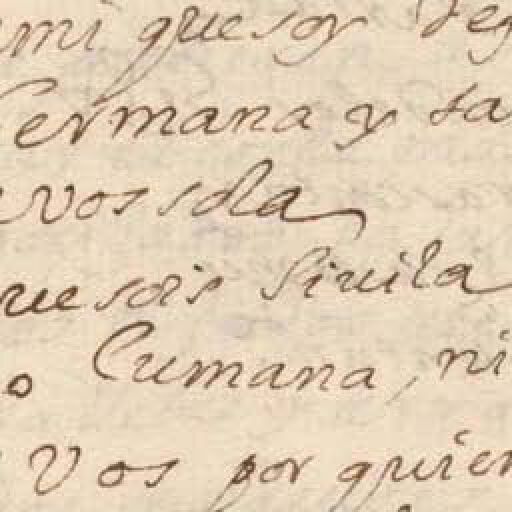 mi que soy
Cermana y
vos sola
que sois Siuila
o Cumana, ni
Vos por quien